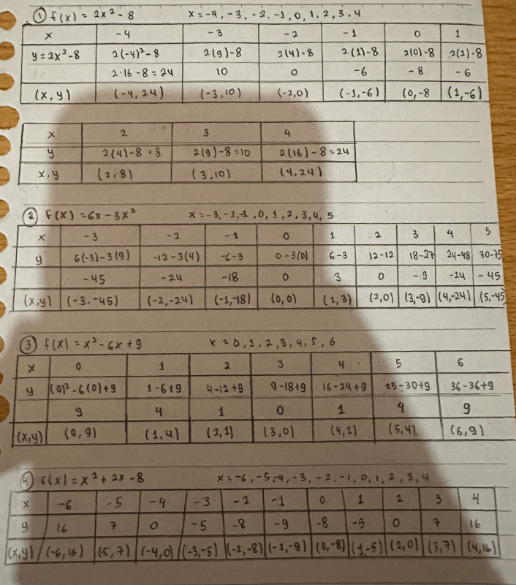 ① f(x) = 2x² - 8 x = -4, -3, -2, -1, 0, 1, 2, 3, 4
x -4 -3 -2 -1 0 1
y = 2x² - 8 2(-4)² - 8 2(9) - 8 2(4) - 8 2(1) - 8 2(0) - 8 2(1) - 8
2·16 - 8 = 24 10 0 -6 -8 -6
(x, y) (-4, 24) (-3, 10) (-2, 0) (-1, -6) (0, -8 (1, -6)
x 2 3 4
y 2(4) - 8 = 8 2(9) - 8 = 10 2(16) - 8 = 24
x, y (2, 8) (3, 10) (4, 24)
② f(x) = 6x - 3x² x = -3, -2, -1, 0, 1, 2, 3, 4, 5
x -3 -2 -1 0 1 2 3 4 5
y 6(-3) - 3(9) -12 - 3(4) -6 - 3 0 - 3(0) 6 - 3 12 - 12 18 - 27 24 - 48 30 - 75
-45 -24 -18 0 3 0 -9 -24 -45
(x, y) (-3, -45) (-2, -24) (-1, -18) (0, 0) (1, 3) (2, 0) (3, -9) (4, -24) (5, -45
③ f(x) = x² - 6x + 9 x = 0, 1, 2, 3, 4, 5, 6
x 0 1 2 3 4 5 6
y (0)² - 6(0) + 9 1 - 6 + 9 4 - 12 + 9 9 - 18 + 9 16 - 24 + 9 25 - 30 + 9 36 - 36 + 9
9 4 1 0 1 4 9
(x, y) (0, 9) (1, 4) (2, 1) (3, 0) (4, 1) (5, 4) (6, 9)
④ f(x) = x² + 2x - 8 x = -6, -5, -4, -3, -2, -1, 0, 1, 2, 3, 4
x -6 -5 -4 -3 -2 -1 0 1 2 3 4
y 16 7 0 -5 -8 -9 -8 -5 0 7 16
(x, y) (-6, 16) (-5, 7) (-4, 0) (-3, -5) (-2, -8) (-1, -9) (0, -8) (1, -5) (2, 0) (3, 7) (4, 16)